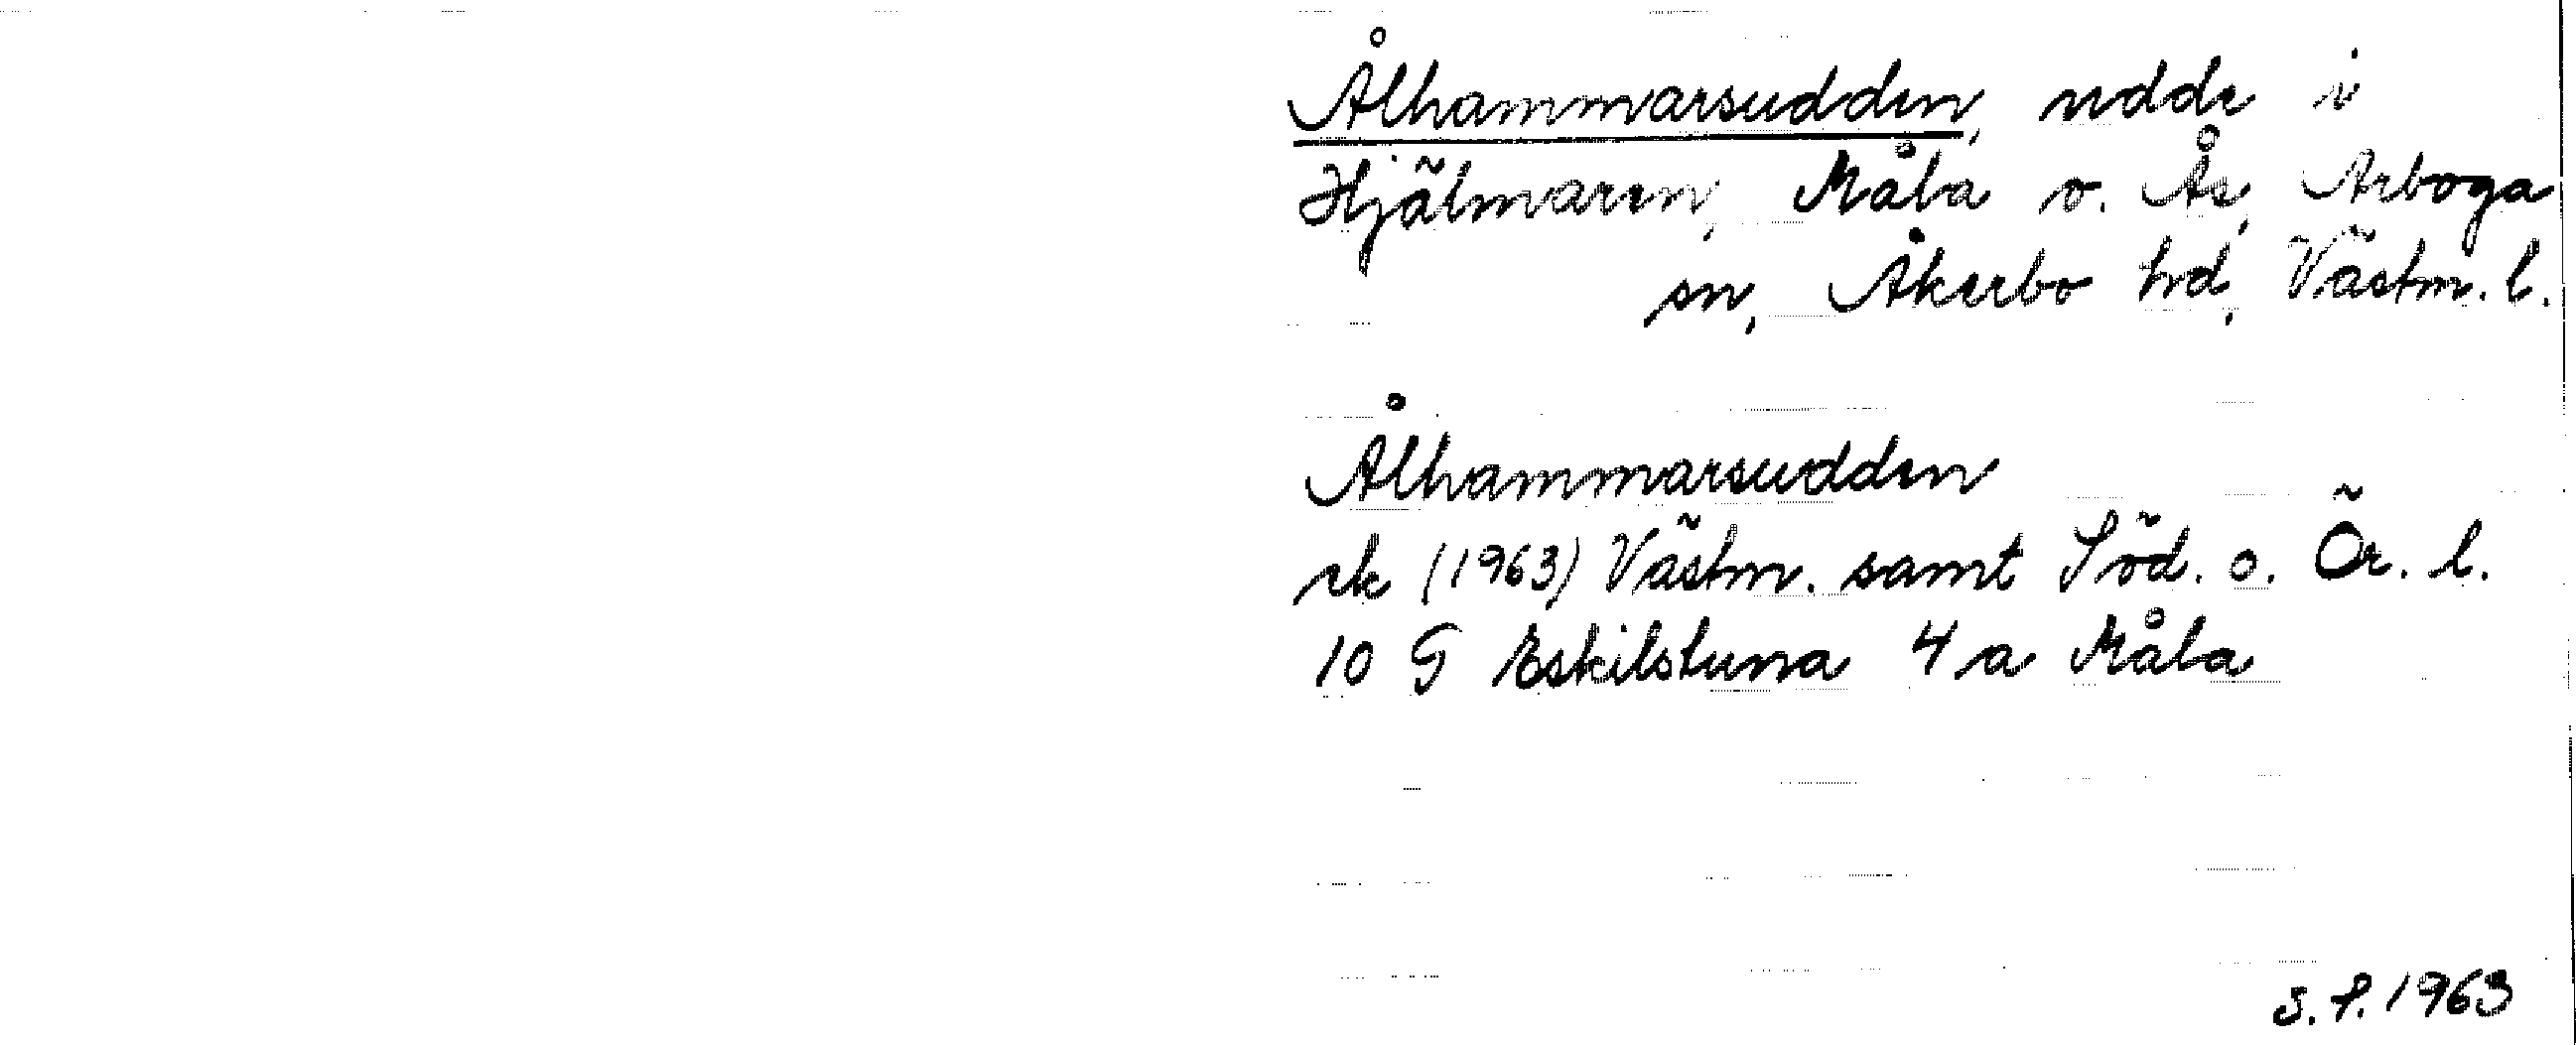 Ålhammarsudden, udde i
Hjälmaren, Måla o. Ås, Arboga
sn, Åkerbo hd, Västm. l.
Ålhammarsudden
ek (1963) Västm. samt Söd. o. Ör. l.
10 G Eskilstuna 4 a Måla
S.F. 1963